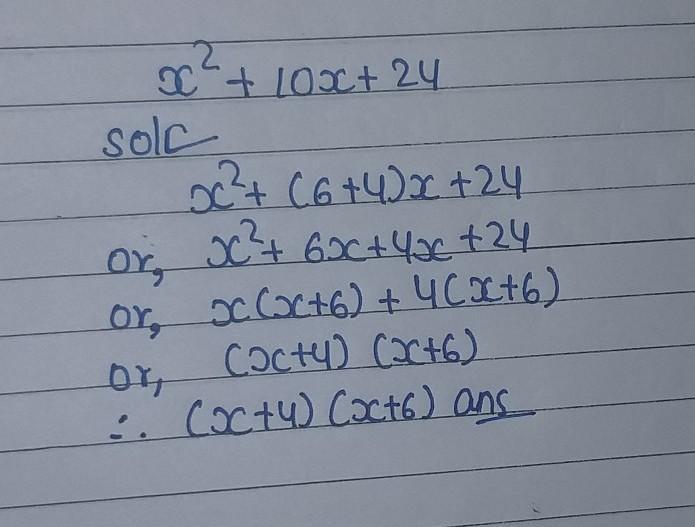 x² + 10x + 24
solⁿ
x² + (6+4)x + 24
or, x² + 6x + 4x + 24
or, x(x+6) + 4(x+6)
or, (x+4) (x+6)
∴ (x+4) (x+6) ans